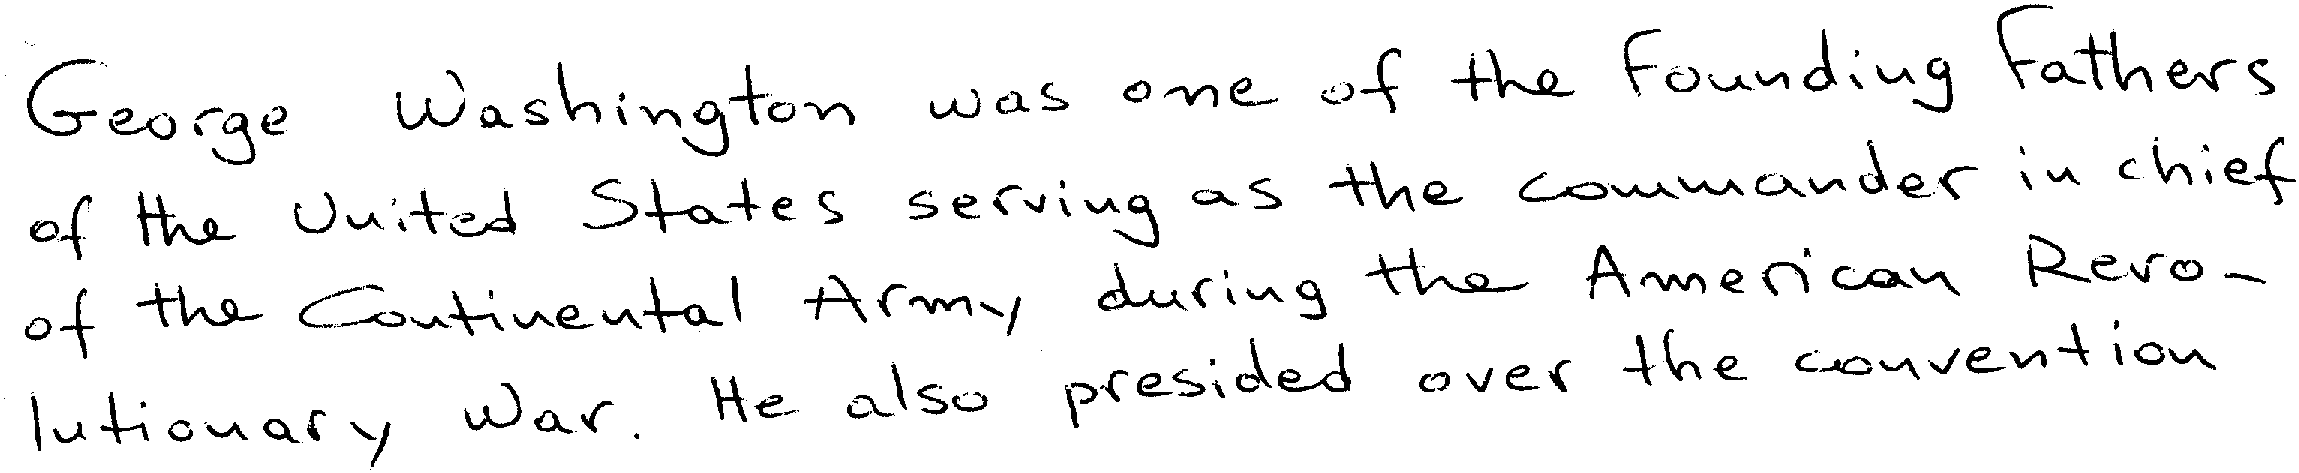 George Washington was one of the Founding Fathers
of the United States serving as the commander in chief
of the Continental Army during the American Revo-
lutionary War. He also presided over the convention